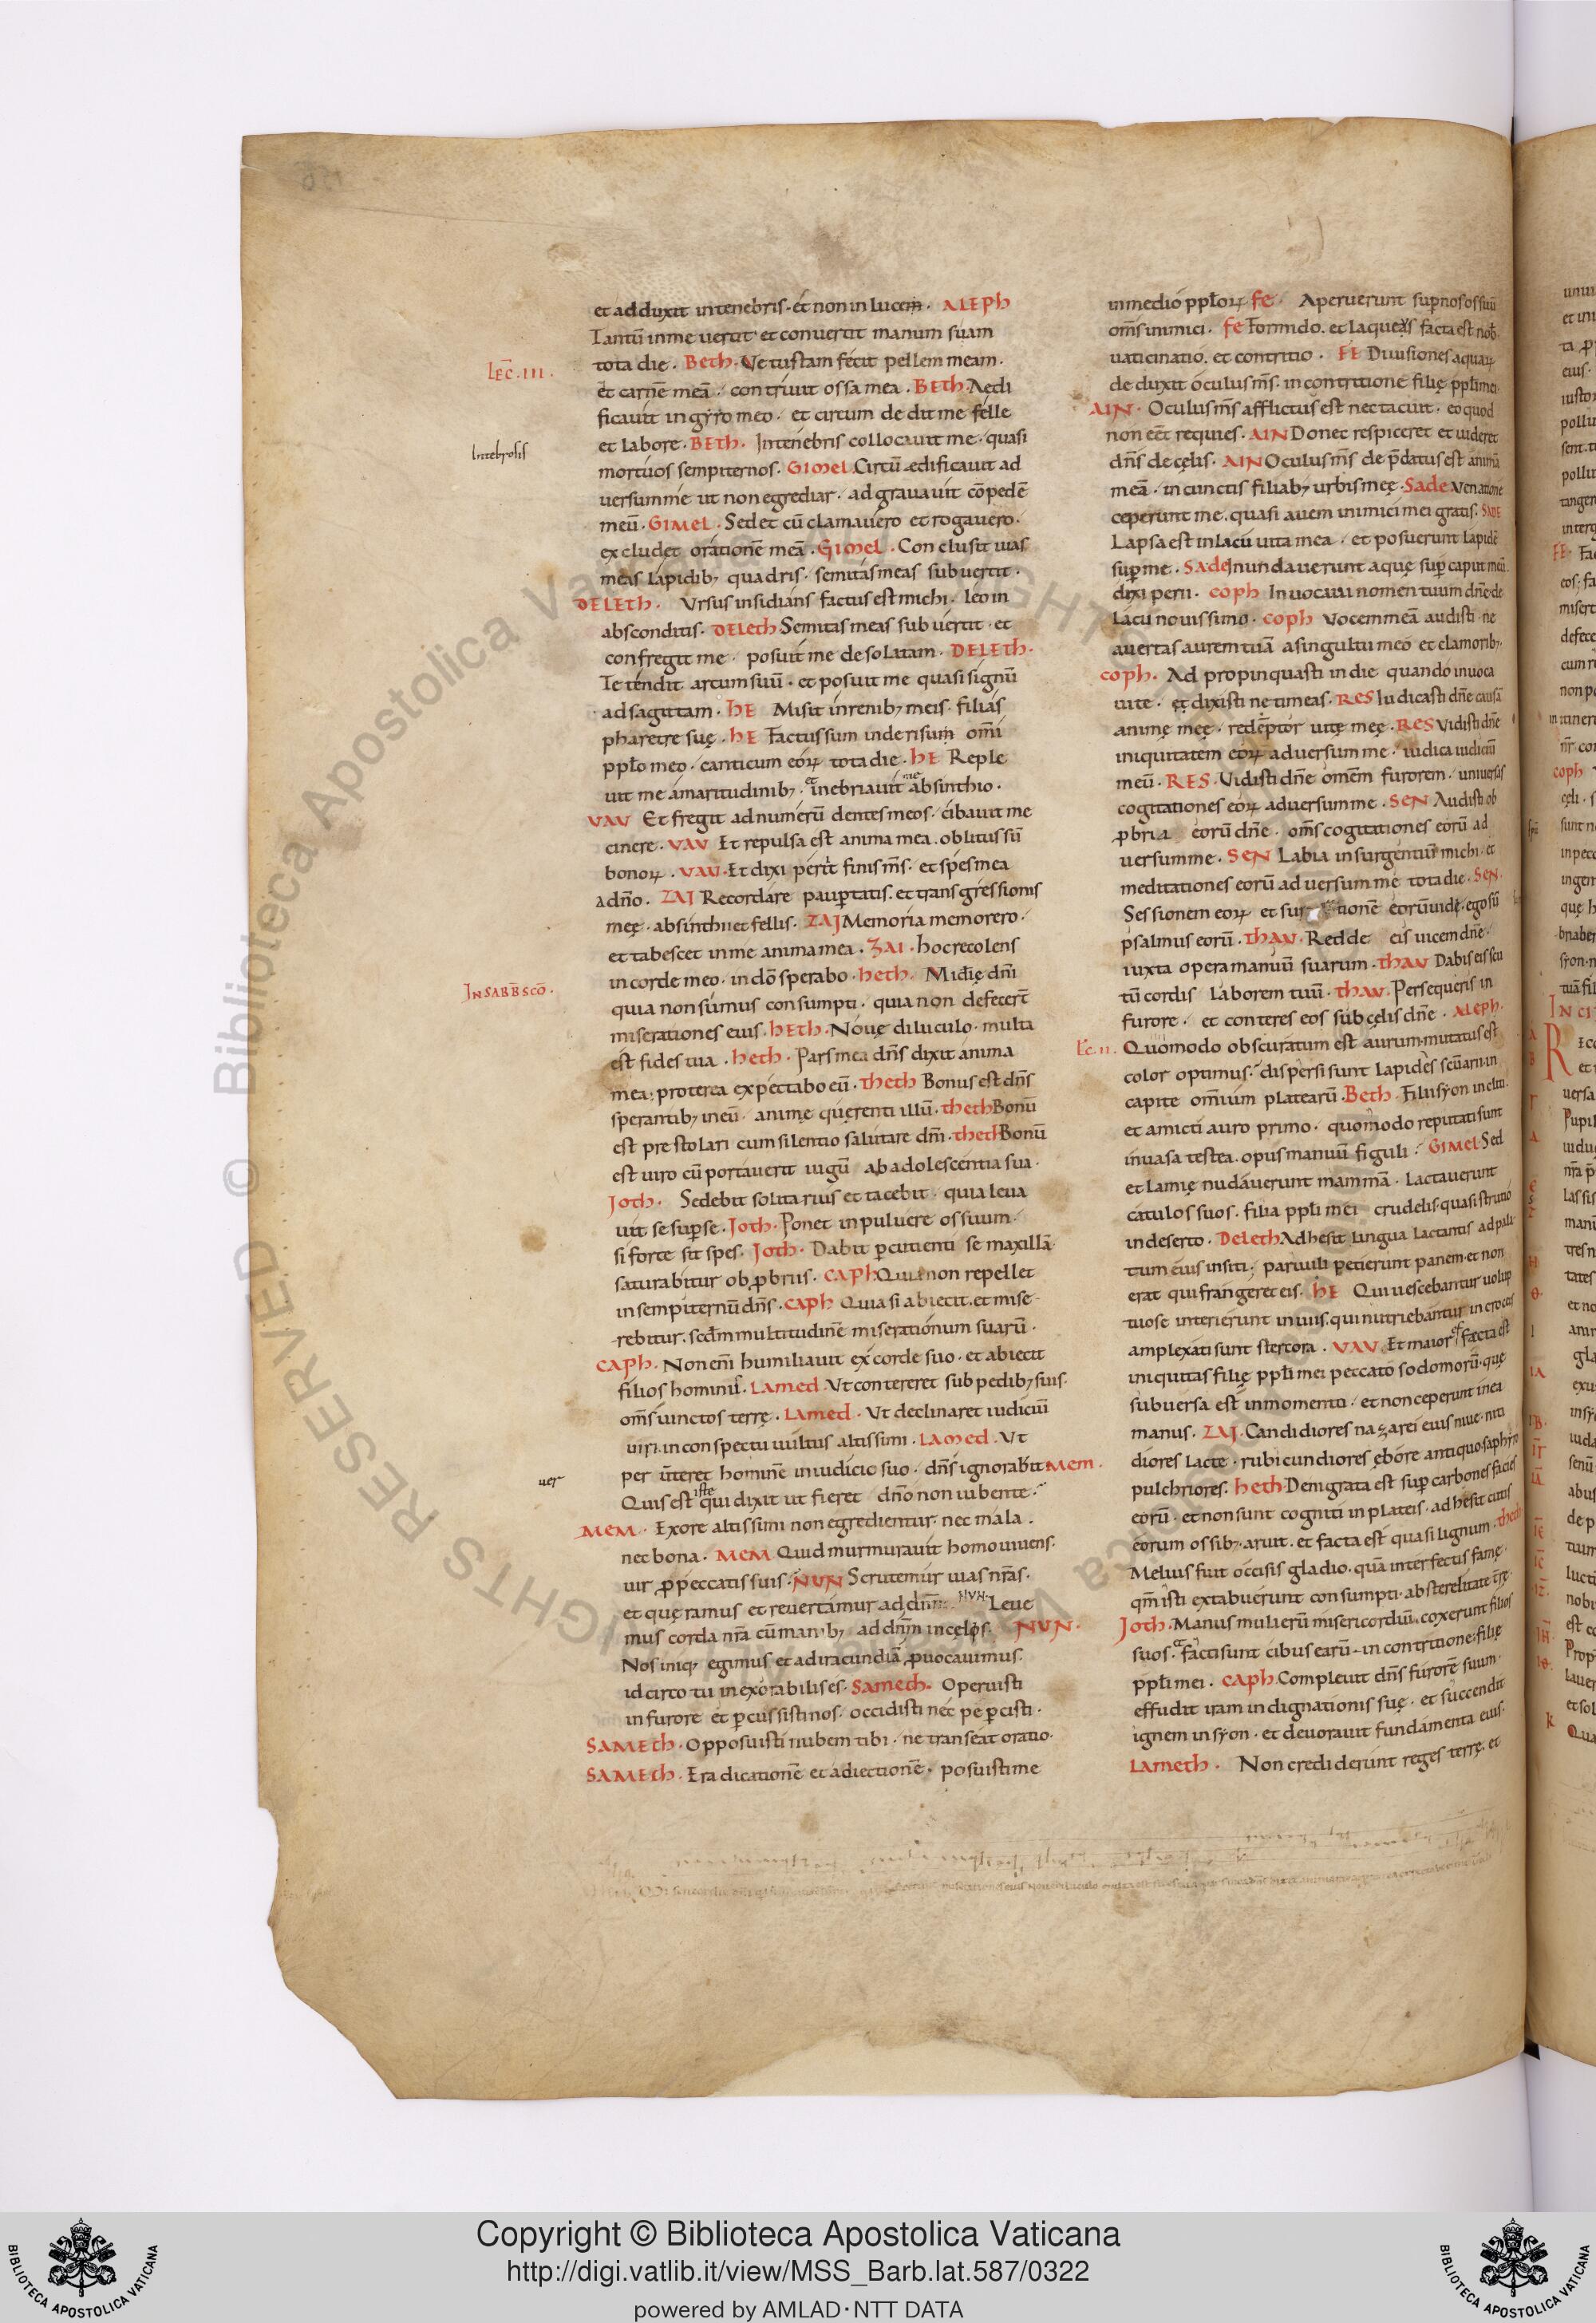 et adduxit intenebris · et non in lucem · ALEPH
Tantū inme uertit et conuertit manum suam
LEC̄ · III ·
tota die · Beth · Vetustam fecit pellem meam ·
et carnē meā · contriuit ossa mea · BETH · Aedi
ficauit in gyro meo · et circum dedit me felle
et labore · BETH · Intenebris collocauit me · quasi
mortuos sempiternos · GIMEL Circū edificauit ad
uersum me ut non egrediar · ad grauauit cōpedē
meū · GIMEL · Sed et cū clamauero et rogauero ·
excludet orationē meā · GIMEL · Conclusit uias
meas lapidib; quadris · semitas meas subuertit ·
DELETH · Vrsus insidians factus est michi · leo in
absconditis · DELETH Semitas meas subuertit · et
confregit me · posuit me desolatam · DELETH ·
Tetendit arcum suū · et posuit me quasi signū
ad sagittam · HE Misit in renib; meis · filias
pharetre suę · HE Factus sum inderisum om̄i
pp̄lo meo · canticum eoꝝ tota die · HE Reple
uit me amaritudinib; · et inebriauit me absinthio ·
VAV Et fregit ad numerū dentes meos · cibauit me
cinere · VAV Et repulsa est anima mea · oblitus sū
bonoꝝ · VAV · Et dixi periit finis m̄s · et spes mea
a dn̄o · ZAJ Recordare paup̄tatis · et transgressionis
meę · absinthii et fellis · ZAJ Memoria memorero ·
et tabescet inme anima mea · ZAI · hoc recolens
in corde meo · in dō sperabo · heth · Mīdię dn̄i
INSABB̄SCŌ ·
quia non sumus consumpti · quia non defecer̄t
miserationes eius · HETH · Nouę diluculo · multa
est fides tua · heth · Pars mea dn̄s dixit anima
mea · proterea expectabo eū · theth Bonus est dn̄s
sperantib; ineū · anime querenti illū · theth Bonū
est prestolari cum silentio salutare dn̄i · theth Bonū
est uiro cū portauerit iugū ab adolescentia sua ·
Joth · Sedebit solitarius et tacebit · quia leua
uit se sup̄ se · Joth · Ponet in puluere os suum ·
si forte sit spes · Joth · Dabit p̄cutienti se maxillā
saturabitur ob p̄briis · CAPH Quia non repellet
in sempiternū dn̄s · CAPH Quia si abiecit · et mise
rebitur · scd̄m multitudinē miserationum suarū ·
CAPH · Non eni humiliauit ex corde suo · et abiecit
filios hominū · Lamed · Vt contereret sub pedib; suis ·
om̄s uinctos terrę · Lamed · Vt declinaret iudiciū
uiri · in conspectu uultus altissimi · Lamed · Vt
uer
per uteret hominē in iudicio suo · dn̄s ignorabit Mem ·
Quis est iste qui dixit ut fieret dn̄o non iubente ·
MEM · Exore altissimi non egredientur nec mala ·
nec bona · MEM Quid murmurauit homo uiuens ·
uir p̄ peccatis suis · NUN Scrutemur uias nr̄as ·
et queramus et reuertamur ad dn̄m · NUN · Leue
mus corda nr̄a cū manib; ad dn̄m incelos · NUN ·
Nos iniq; egimus et ad iracundiā p̄uocauimus ·
idcirco tu inexorabilis es · Samech · Operuisti
in furore et p̄cussisti nos · occidisti nec pep̄cisti ·
SAMECH · Opposuisti nubem tibi · ne transeat oratio ·
SAMECH · Eradicationē et adiectionē · posuisti me
in medio pp̄loꝝ fe · Aperuerunt sup̄ nos os suū
om̄s inimici · fe Formido · et laqueus facta est nob̄
uaticinatio · et contritio · FE Diuisiones aquaꝝ
deduxit oculus m̄s · in contritione filię pp̄li mei
AIN · Oculus m̄s afflictus est nec tacuit · eo quod
non eēt requies · AIN Donec respiceret et uideret
dn̄s de cęlis · AIN Oculus m̄s dep̄datus est animā
meā · in cunctis filiab; urbis meę · Sade Venatione
ceperunt me · quasi auem inimici mei gratis · SADE
Lapsa est in lacū uita mea · et posuerunt lapidē
sup̄ me · Sade Inundauerunt aquę sup̄ caput meū ·
dixi perii · coph Inuocaui nomen tuum dn̄e · de
lacu nouissimo · coph Vocem meā audisti · ne
auertas aurem tuā a singultu meo et clamorib; ·
coph · Ad propinquasti in die quando inuoca
ui te · et dixisti ne timeas · RES Iudicasti dn̄e causā
animę meę · redēptor uitę meę · RES Vidisti dn̄e
iniquitatem eoꝝ aduersum me · iudica iudiciū
meū · RES · Vidisti dn̄e omēm furorem · uniuersas
cogitationes eoꝝ aduersum me · SEN Audisti ob
p̄bria eorū dn̄e · om̄s cogitationes eorū ad
uersum me · SEN Labia insurgentiū michi · et
meditationes eorū aduersum me tota die · SEN ·
Sessionem eoꝝ et surrectionē eorū uide · ego sū
psalmus eorū · THAV · Redde eis uicem dn̄e ·
iuxta opera manuū suarum · THAV Dabis eis scu
tū cordis laborem tuū · THAV · Persequeris in
furore · et conteres eos sub cęlis dn̄e · ALEPH ·
Lc̄ · II · Quomodo obscuratum est aurum · mutatus est
color optimus · dispersi sunt lapides sc̄uarii · in
capite omīum platearū · Beth · Filii syon incliti ·
et amicti auro primo · quomodo reputati sunt
in uasa testea · opus manuū figuli · GIMEL Sed
et lamię nudauerunt mammā · lactauerunt
catulos suos · filia pp̄li mei crudelis · quasi strutio
in deserto · Deleth Adhesit lingua lactantis ad pala
tum eius in siti · paruuli petierunt panem · et non
erat qui frangeret eis · HE Qui uescebantur uolup
tuose interierunt in uiis · qui nutriebantur in croceis
amplexati sunt stercora · VAV · Et maior effecta est
iniquitas filię pp̄li mei peccato sodomorū · quę
subuersa est in momento · et non ceperunt in ea
manus · ZAJ · Candidiores nazarei eius niue · niti
diores lacte · rubicundiores ebore antiquo · saphyro
pulchriores · heth · Denigrata est sup̄ carbones facies
eorū · et non sunt cogniti in plateis · adhesit cutis
eorum ossib; · aruit · et facta est quasi lignum · theth
Melius fuit occisis gladio · quā interfectis famę ·
qm̄ isti extabuerunt consumpti · ab sterelitate terrę ·
Joth · Manus mulierū misericordiū · coxerunt filios
suos · facti sunt cibus earū · in contritione · filię
pp̄li mei · CAPH Compleuit dn̄s furorē suum ·
effudit iram indignationis suę · et succendit
ignem in syon · et deuorauit fundamenta eius ·
Lameth · Non crediderunt reges terrę · et
Copyright © Biblioteca Apostolica Vaticana
http://digi.vatlib.it/view/MSS_Barb.lat.587/0322
powered by AMLAD · NTT DATA
BIBLIOTECA APOSTOLICA VATICANA
BIBLIOTECA APOSTOLICA VATICANA